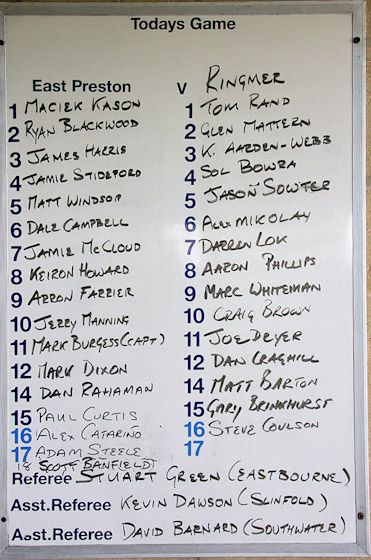 Todays Game
East Preston V RINGMER
1 MACIEK KASON 1 TOM RAND
2 RYAN BLACKWOOD 2 GLEN MATTERN
3 JAMES HARRIS 3 K. AARDEN-WEBB
4 JAMIE STIDEFORD 4 SOL BOWRA
5 MATT WINDSOR 5 JASON SOWTER
6 DALE CAMPBELL 6 ALEX MIKOLAY
7 JAMIE McCLOUD 7 DARREN LOK
8 KEIRON HOWARD 8 AARON PHILLIPS
9 AZRON FAZZIER 9 MARC WHITEMAN
10 JERRY MANNING 10 CRAIG BROWN
11 MARK BURGESS (CAPT) 11 JOE DRYER
12 MARK DIXON 12 DAN CRAGHILL
14 DAN RAHAMAN 14 MATT BARTON
15 PAUL CURTIS 15 GARY BRINKHURST
16 ALEX CATARINO 16 STEVE COULSON
17 ADAM STEELE 17
18 SCOTT BANFIELD
Referee STUART GREEN (EASTBOURNE)
Asst.Referee KEVIN DAWSON (SLINFOLD)
Asst.Referee DAVID BARNARD (SOUTHWATER)